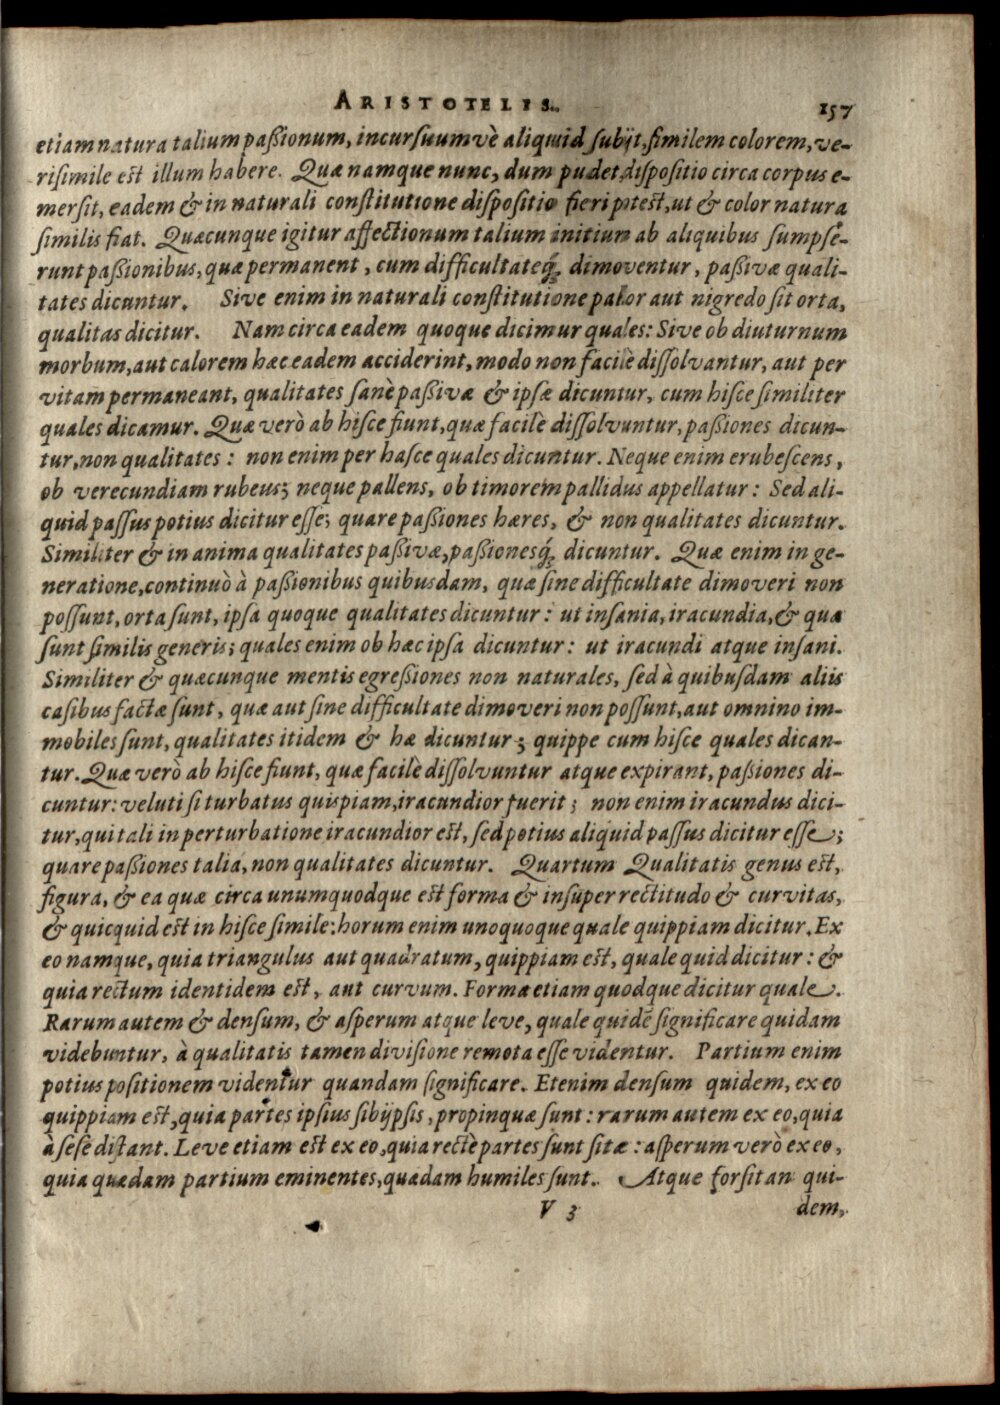 ARISTOTELIS. 157
etiam natura talium paßionum, incursuumvè aliquid subijt, similem colorem, ve-
risimile est illum habere. Quæ namque nunc, dum pudet, dispositio circa corpus e-
mersit, eadem & in naturali constitutione dispositio fieri potest, ut & color natura
similis fiat. Quæcunque igitur affectionum talium initium ab aliquibus sumpse-
runt paßionibus, quæ permanent, cum difficultateq; dimoventur, paßivæ quali-
tates dicuntur. Sive enim in naturali constitutione palor aut nigredo sit orta,
qualitas dicitur. Nam circa eadem quoque dicimur quales: Sive ob diuturnum
morbum, aut calorem hæc eadem acciderint, modo non facilè dissolvantur, aut per
vitam permaneant, qualitates sanè paßivæ & ipsæ dicuntur, cum hisce similiter
quales dicamur. Quæ verò ab hisce fiunt, quæ facilè dissolvuntur, paßiones dicun-
tur, non qualitates: non enim per hasce quales dicuntur. Neque enim erubescens,
ob verecundiam rubeus; neque pallens, ob timorem pallidus appellatur: Sed ali-
quid passus potius dicitur esse; quare paßiones hæres, & non qualitates dicuntur.
Similiter & in anima qualitates paßivæ, paßionesq; dicuntur. Quæ enim in ge-
neratione, continuò à paßionibus quibusdam, quæ sine difficultate dimoveri non
possunt, orta sunt, ipsa quoque qualitates dicuntur: ut insania, iracundia, & quæ
sunt similis generis; quales enim ob hæc ipsa dicuntur: ut iracundi atque insani.
Similiter & quæcunque mentis egreßiones non naturales, sed à quibusdam aliis
casibus factæ sunt, quæ aut sine difficultate dimoveri non possunt, aut omnino im-
mobiles sunt, qualitates itidem & hæ dicuntur; quippe cum hisce quales dican-
tur. Quæ verò ab hisce fiunt, quæ facilè dissolvuntur atque expirant, paßiones di-
cuntur: veluti si turbatus quispiam, iracundior fuerit; non enim iracundus dici-
tur, qui tali in perturbatione iracundior est, sed potius aliquid passus dicitur esse;
quare paßiones talia, non qualitates dicuntur. Quartum Qualitatis genus est,
figura, & ea quæ circa unumquodque est forma & insuper rectitudo & curvitas,
& quicquid est in hisce simile: horum enim unoquoque quale quippiam dicitur. Ex
eo namque, quia triangulus aut quadratum, quippiam est, quale quid dicitur: &
quia rectum identidem est, aut curvum. Forma etiam quodque dicitur quale.
Rarum autem & densum, & asperum atque leve, quale quidē significare quidam
videbuntur, à qualitatis tamen divisione remota esse videntur. Partium enim
potius positionem videntur quandam significare. Etenim densum quidem, ex eo
quippiam est, quia partes ipsius sibijpsis, propinquæ sunt: rarum autem ex eo, quia
à sese distant. Leve etiam est ex eo, quia rectè partes sunt sitæ: asperum verò ex eo,
quia quædam partium eminentes, quædam humiles sunt. Atque forsitan qui-
V 3 dem,